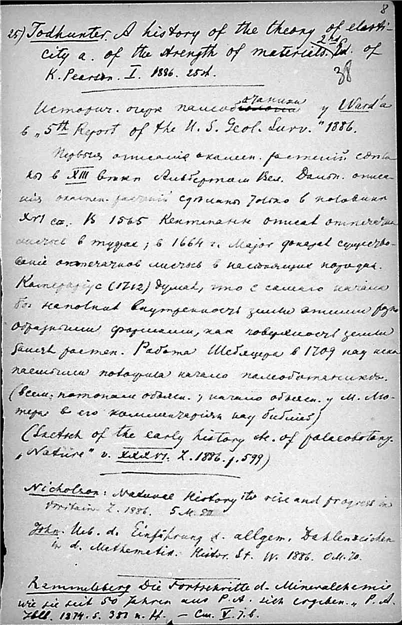 8
25) Todhunter. A history of the theory of elasti-
city a. of the strength of materials. Ed. of
K. Pearson. I. 1886. 25sh.
38
Историч. очерк палеоботаники у Ward'a
в „5th Report of the U. S. Geol. Surv." 1886.
Первыя описания окамен. растений сдѣла
ны в XIII вѣкѣ Альбертом Вел. Дальн. описа
ния окамен. растений сдѣланы только в половинѣ
XVI ст. В 1565 Кентманъ описал отпечатки
листьев в туфах; в 1664 г. Major доказал существо-
вание отпечатков листьев в настоящих породах.
Камерариус (1712) думал, что с самаго начала
бог наполнил внутренность земли этими
образными формами, как поверхность земли
растен. Работа Шейхцера в 1709 над
положила начало палеоботаникѣ.
(всем. потопом объясн. начало объясн. у М. Лю-
тера в его комментариях на библию)
(Sketch of the early history etc. of palaeobotany.
„Nature" v. XXXVI. Z. 1886. p. 599)
Nicholson: Natural History its rise and progress in
Britain. Z. 1886. 5 M.
John: Ueb. d. Einführung d. allgem. Zahlenzeichen
in d. Mathematik. St. W. 1886.
Rammelsberg Die Fortschritte d. Mineralchemie
wie sie seit 50 Jahren aus P. A. sich ergeben. „P. A.
Jbll. 1874. S. 381 u. ff. — См. V. 7. б.